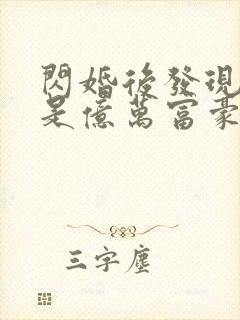 閃婚後發現
是億萬富豪
三字塵